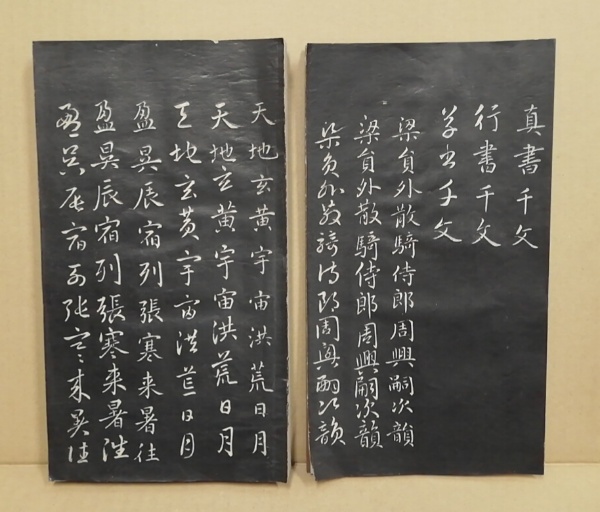 真書千文
行書千文
草書千文
梁員外散騎侍郎周興嗣次韻
梁員外散騎侍郎周興嗣次韻
梁員外散騎侍郎周興嗣次韻
天地玄黃宇宙洪荒日月
天地玄黃宇宙洪荒日月
天地玄黃宇宙洪荒日月
盈昃辰宿列張寒来暑往
盈昃辰宿列張寒来暑往
盈昃辰宿列張寒来暑往